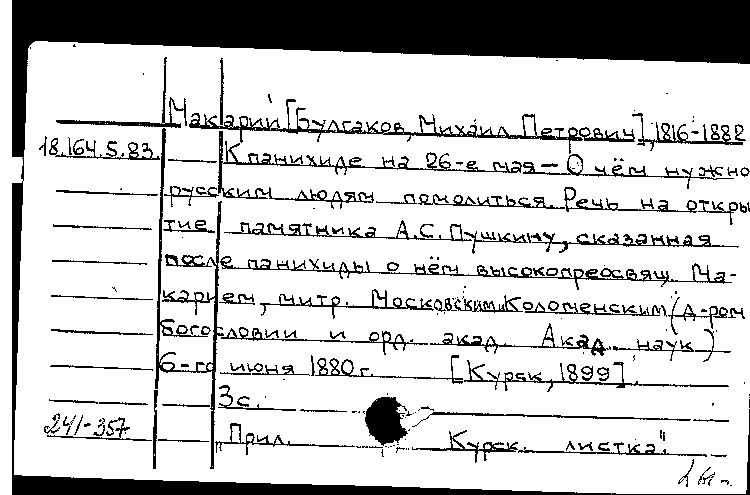 Макарий [Булгаков, Михаил Петрович], 1816-1882
18.164.5.83. К панихиде на 26-е мая — О чём нужно
русским людям помолиться. Речь на откры
тие памятника А.С. Пушкину, сказанная
после панихиды о нём высокопреосвящ. Ма-
карием, митр. Московским и Коломенским (д-ром
богословии и орд. акад. Акад. наук)
6-го июня 1880 г. [Курск, 1899].
3 с.
241-357 "Прил. Курск. листка".